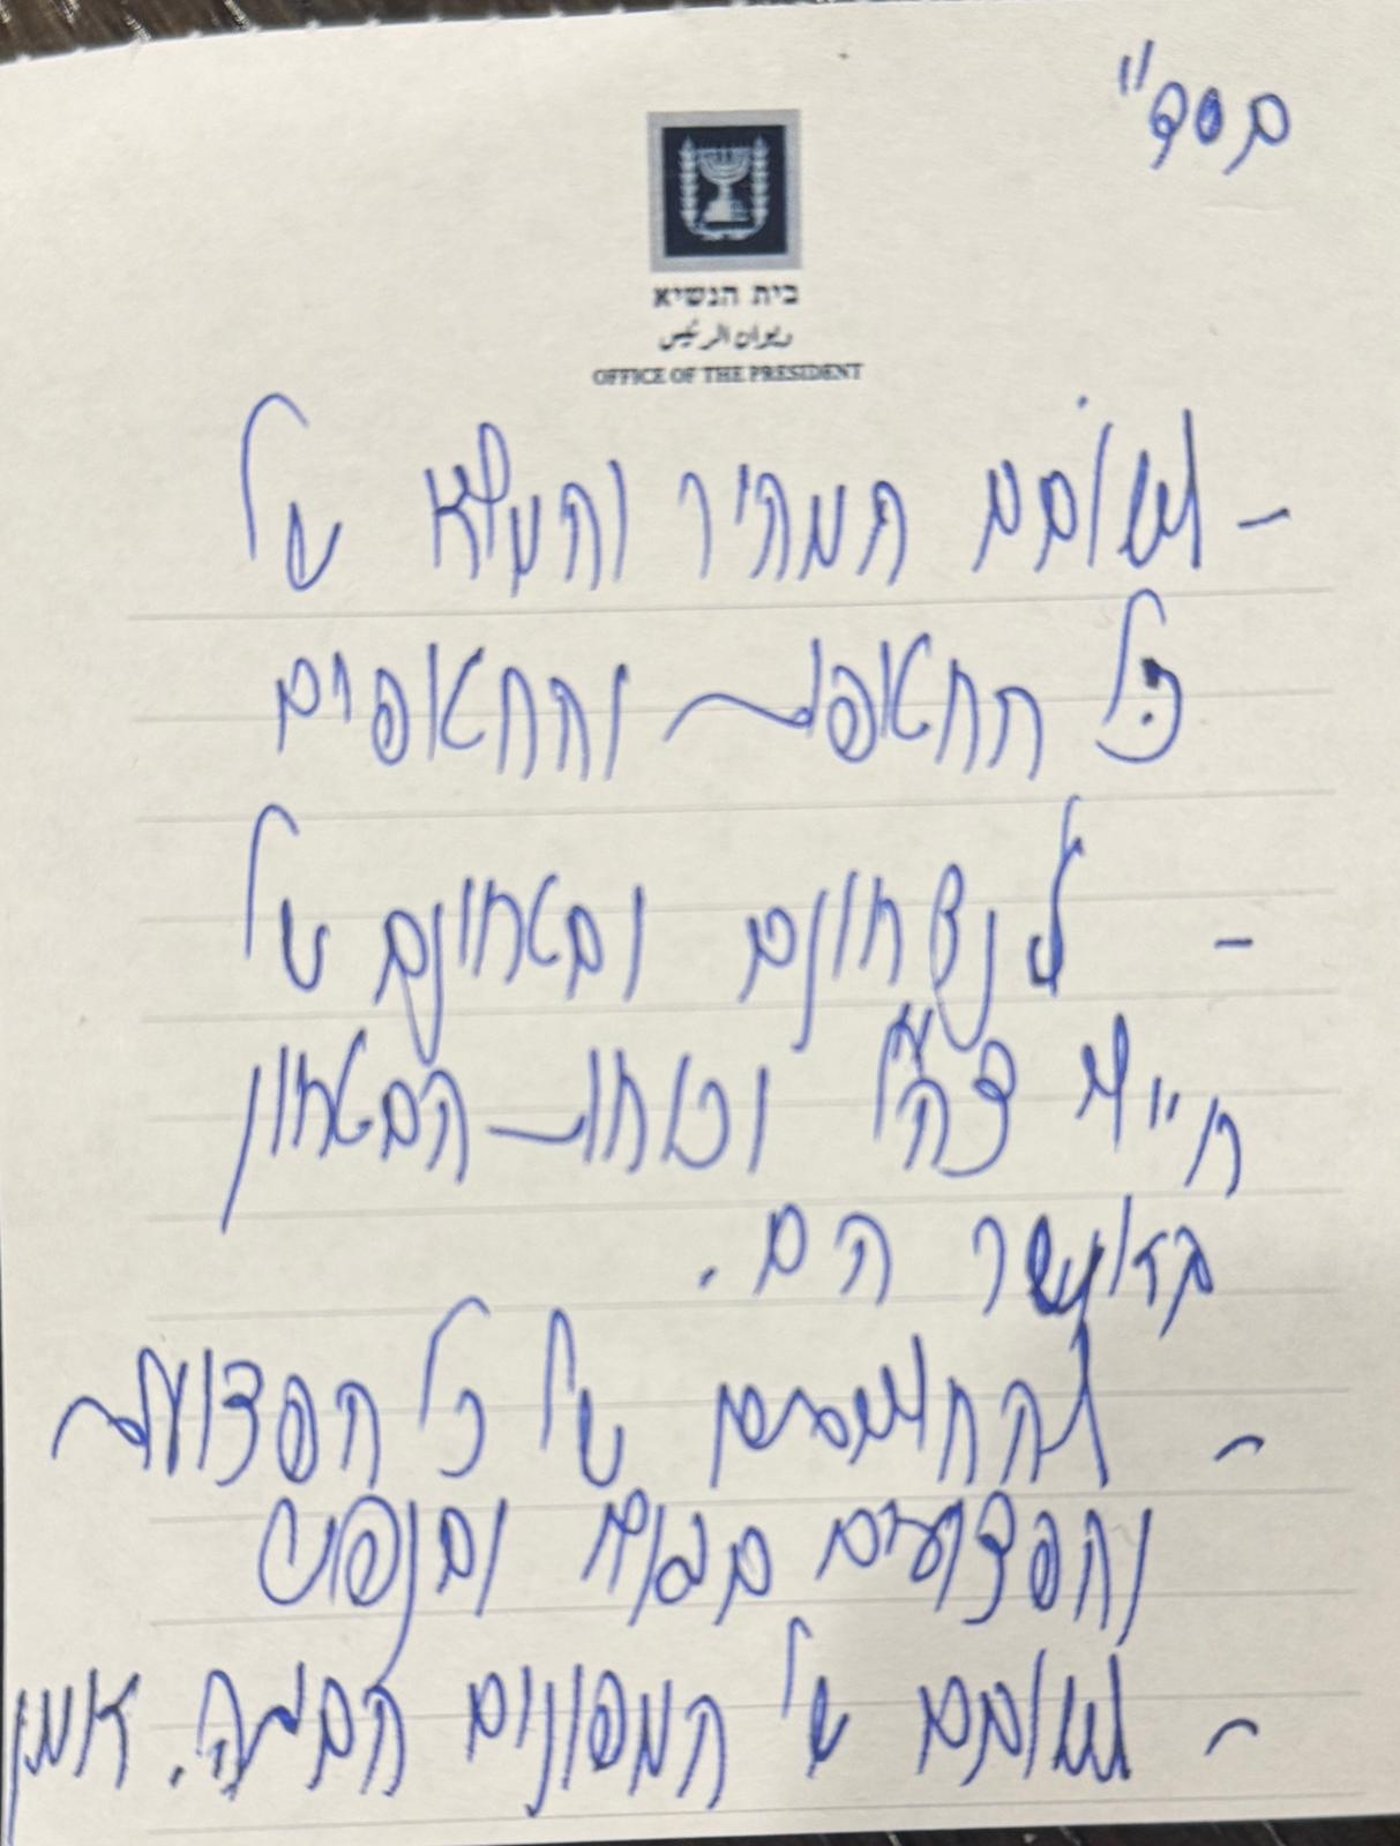 בס״ד
בית הנשיא
ديوان الرئيس
OFFICE OF THE PRESIDENT
- לשובם המהיר והמלא של
כל החטופות והחטופים
- לנצחונם ובטחונם של
חיילי צה״ל וכוחות הבטחון
באשר הם.
- להחלמתם של כל הפצועות
והפצועים בגוף ובנפש
- לשובם של המפונים הביתה. אמן